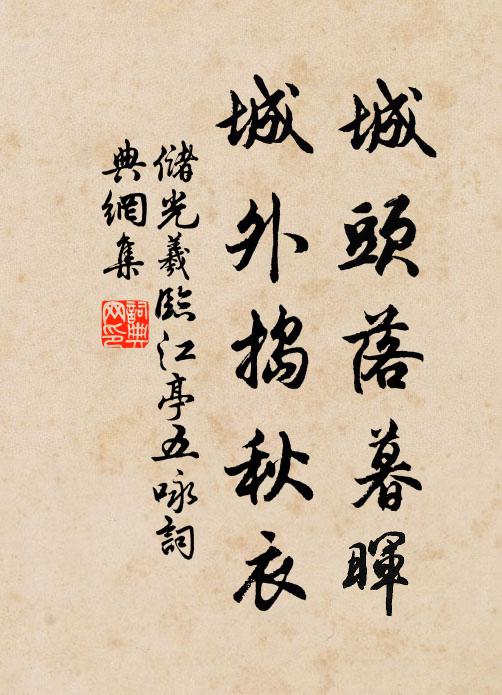 城頭落暮暉
城外搗秋衣
儲光羲臨江亭五咏詞
典網集
詞典網印